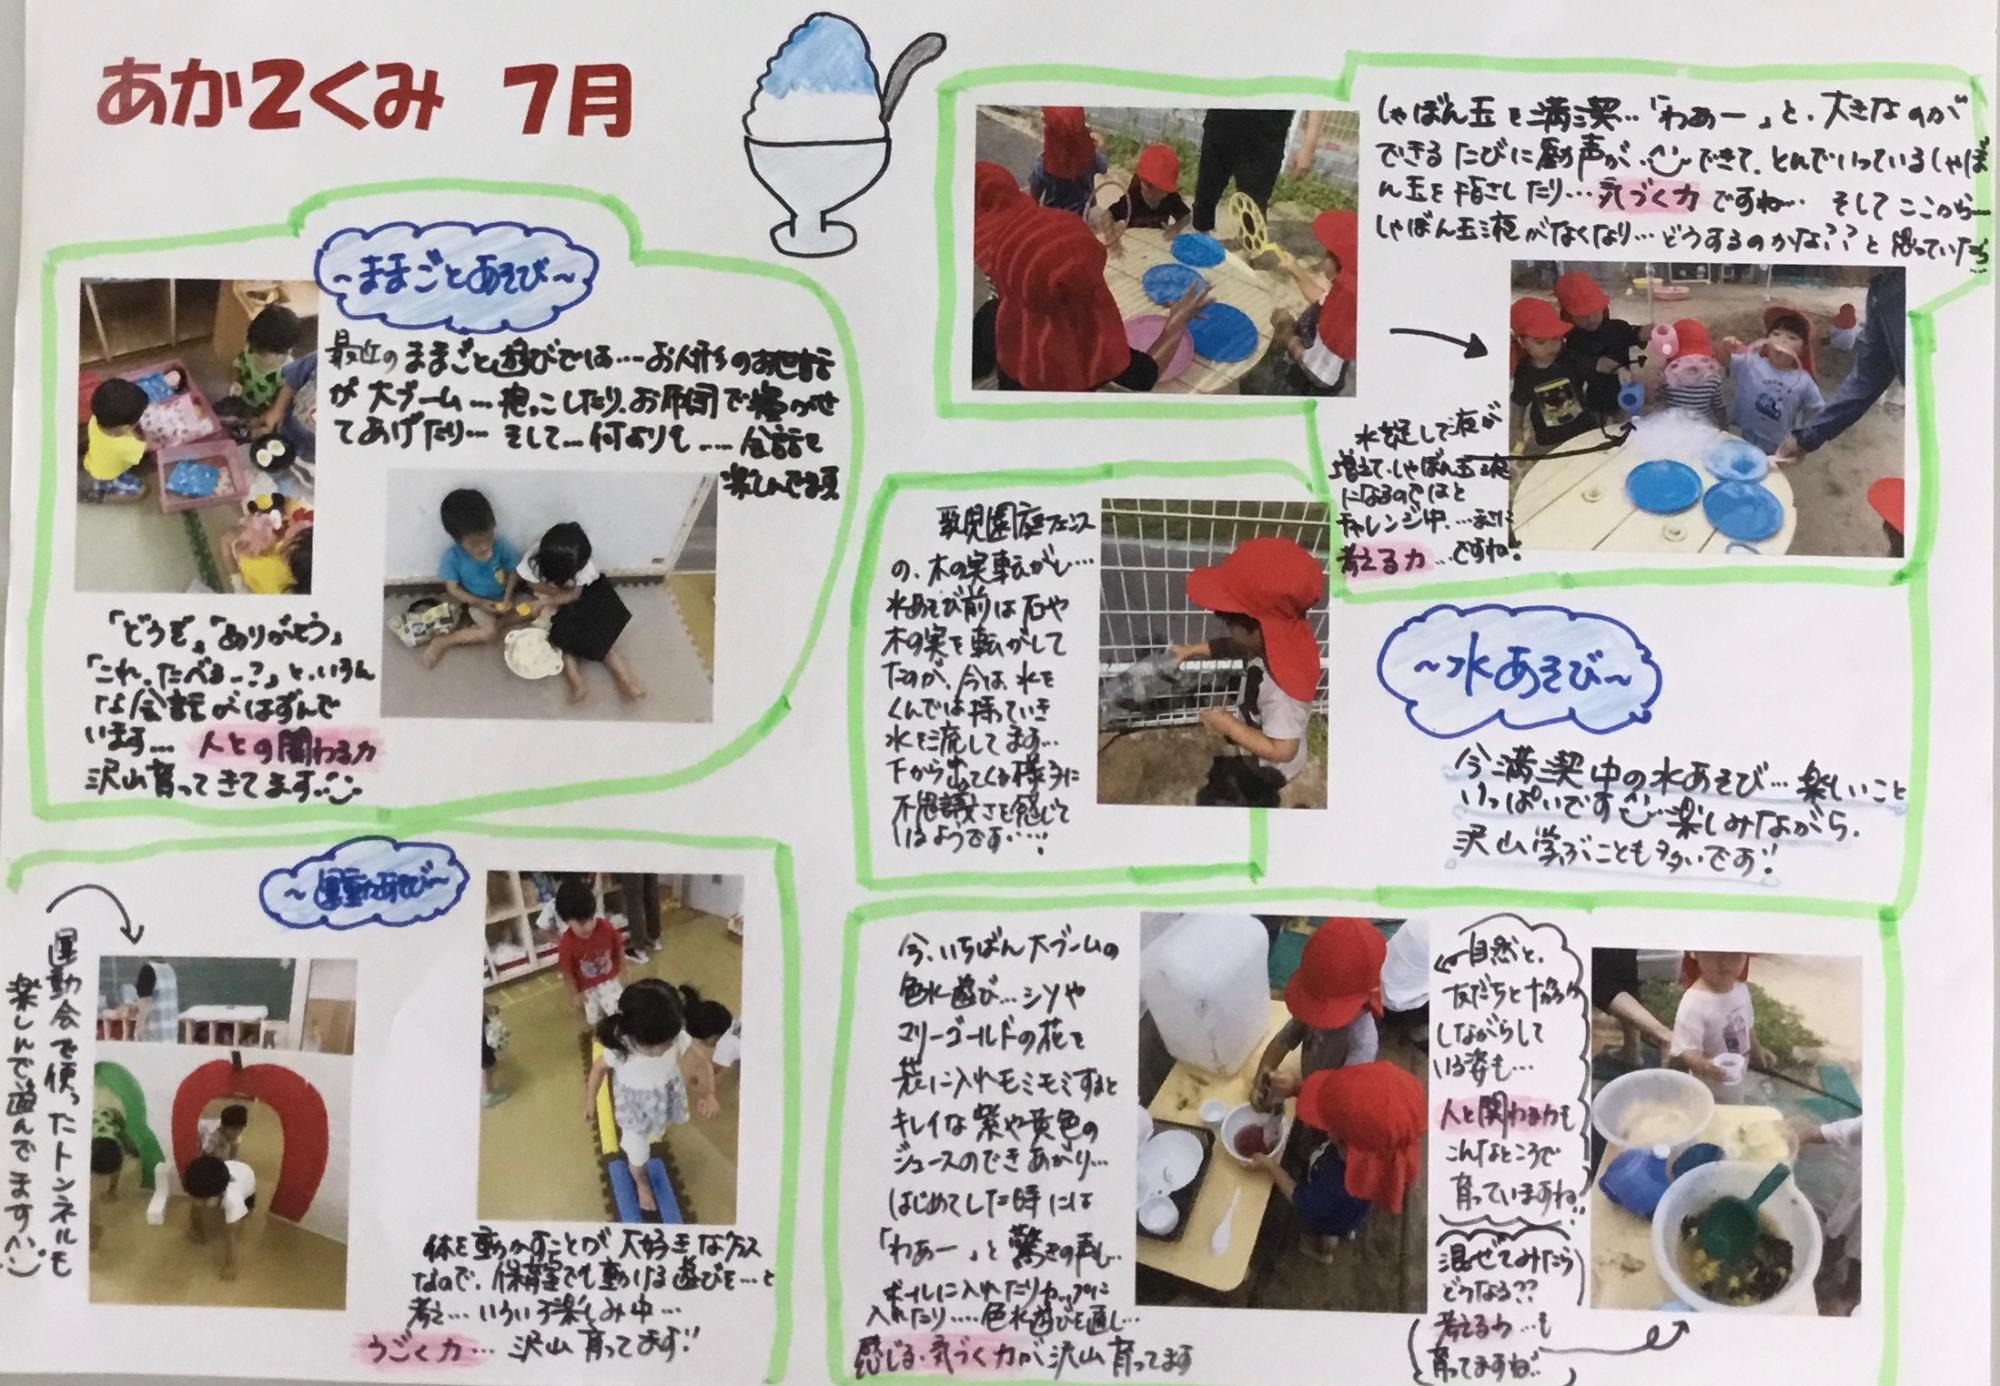 あか2くみ 7月
~ままごとあそび~
最近のままごと遊びでは…お人形のお世話
が大ブーム…抱っこしたり、お布団で寝かせ
てあげたり…そして…何よりも……会話を
楽しんでる頃
「どうぞ」「ありがとう」
「これ、たべるー?」と、いろん
な会話がはずんで
います… 人との関わる力
沢山育ってきてます
しゃぼん玉を満喫…「わぁー」と、大きなのが
できるたびに歓声が…できて、とんでいっているしゃぼ
ん玉を指さしたり…気づく力ですね… そしてここから…
しゃぼん玉液がなくなり…どうするのかな??と思っていたら
水を足して液が
増えて、しゃぼん玉液
になるのではと
チャレンジ中…また
考える力…ですね!
乳児園庭フェンス
の、木の実転がし…
水あそび前は石や
木の実を転がして
たのが、今は、水を
くんでは持っていき
水を流してます…
下から出てくる様子に
不思議さを感じて
いるようです……!
~水あそび~
今満喫中の水あそび…楽しいこと
いっぱいです 楽しみながら、
沢山学ぶことも多いです!!
~運動あそび~
運動会で使ったトンネルも
楽しんで遊んでます
体を動かすことが大好きなクラス
なので、保育室でも動ける遊びを…と
考え…いろいろ楽しみ中…
うごく力…沢山育ってます!!
今、いちばん大ブームの
色水遊び…シソや
マリーゴールドの花を
袋に入れモミモミすると
キレイな紫や黄色の
ジュースのできあがり…
はじめてした時には
「わぁー」と驚きの声も…
ボールに入れたりカップに
入れたり……色水遊びを通し…
感じる・気づく力が沢山育ってます
自然と、
友だちと協力
しながらして
いる姿も…
人と関わる力も
こんなところで
育っていますね!!
混ぜてみたら
どうなる??
考える力…も
育ってますね!!